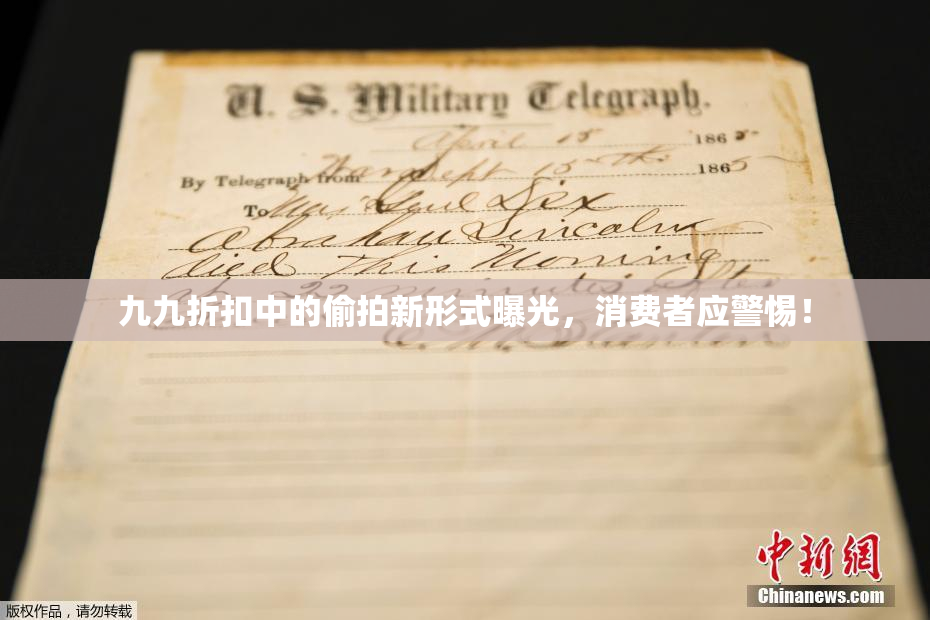 U. S. Military Telegraph.
April 15 1865
By Telegraph from War Dept 15 1865
To Maj Genl Dix
Abraham Lincoln
died This Morning
at 22 minutes after
九九折扣中的偷拍新形式曝光，消费者应警惕！
E. M. Stanton
中新网
Chinanews.com
版权作品，请勿转载